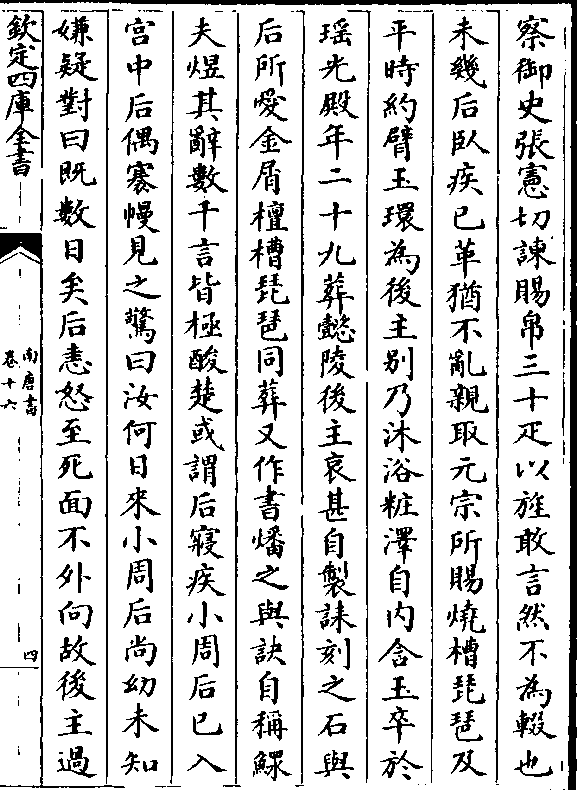 察御史張憲切諫賜帛三十疋以旌敢言然不為輟也
未幾后臥疾已革猶不亂親取元宗所賜燒槽琵琶及
平時約臂玉環為後主别乃沐浴粧澤自内含玉卒於
瑶光殿年二十九葬懿陵後主哀甚自製誄刻之石與
后所愛金屑檀槽琵琶同葬又作書燔之與訣自稱鰥
夫煜其辭數千言皆極酸楚或謂后寢疾小周后已入
宫中后偶褰幔見之驚曰汝何日來小周后尚幼未知
嫌疑對曰既數日矣后恚怒至死面不外向故後主過
欽定四庫全書
南唐書
卷十六
四